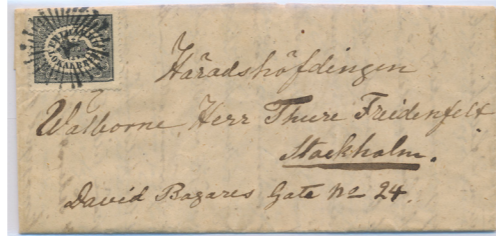 Häradshöfdingen
Walborne Herr Thure Freidenfelt
Stockholm.
David Bagares Gate No 24.